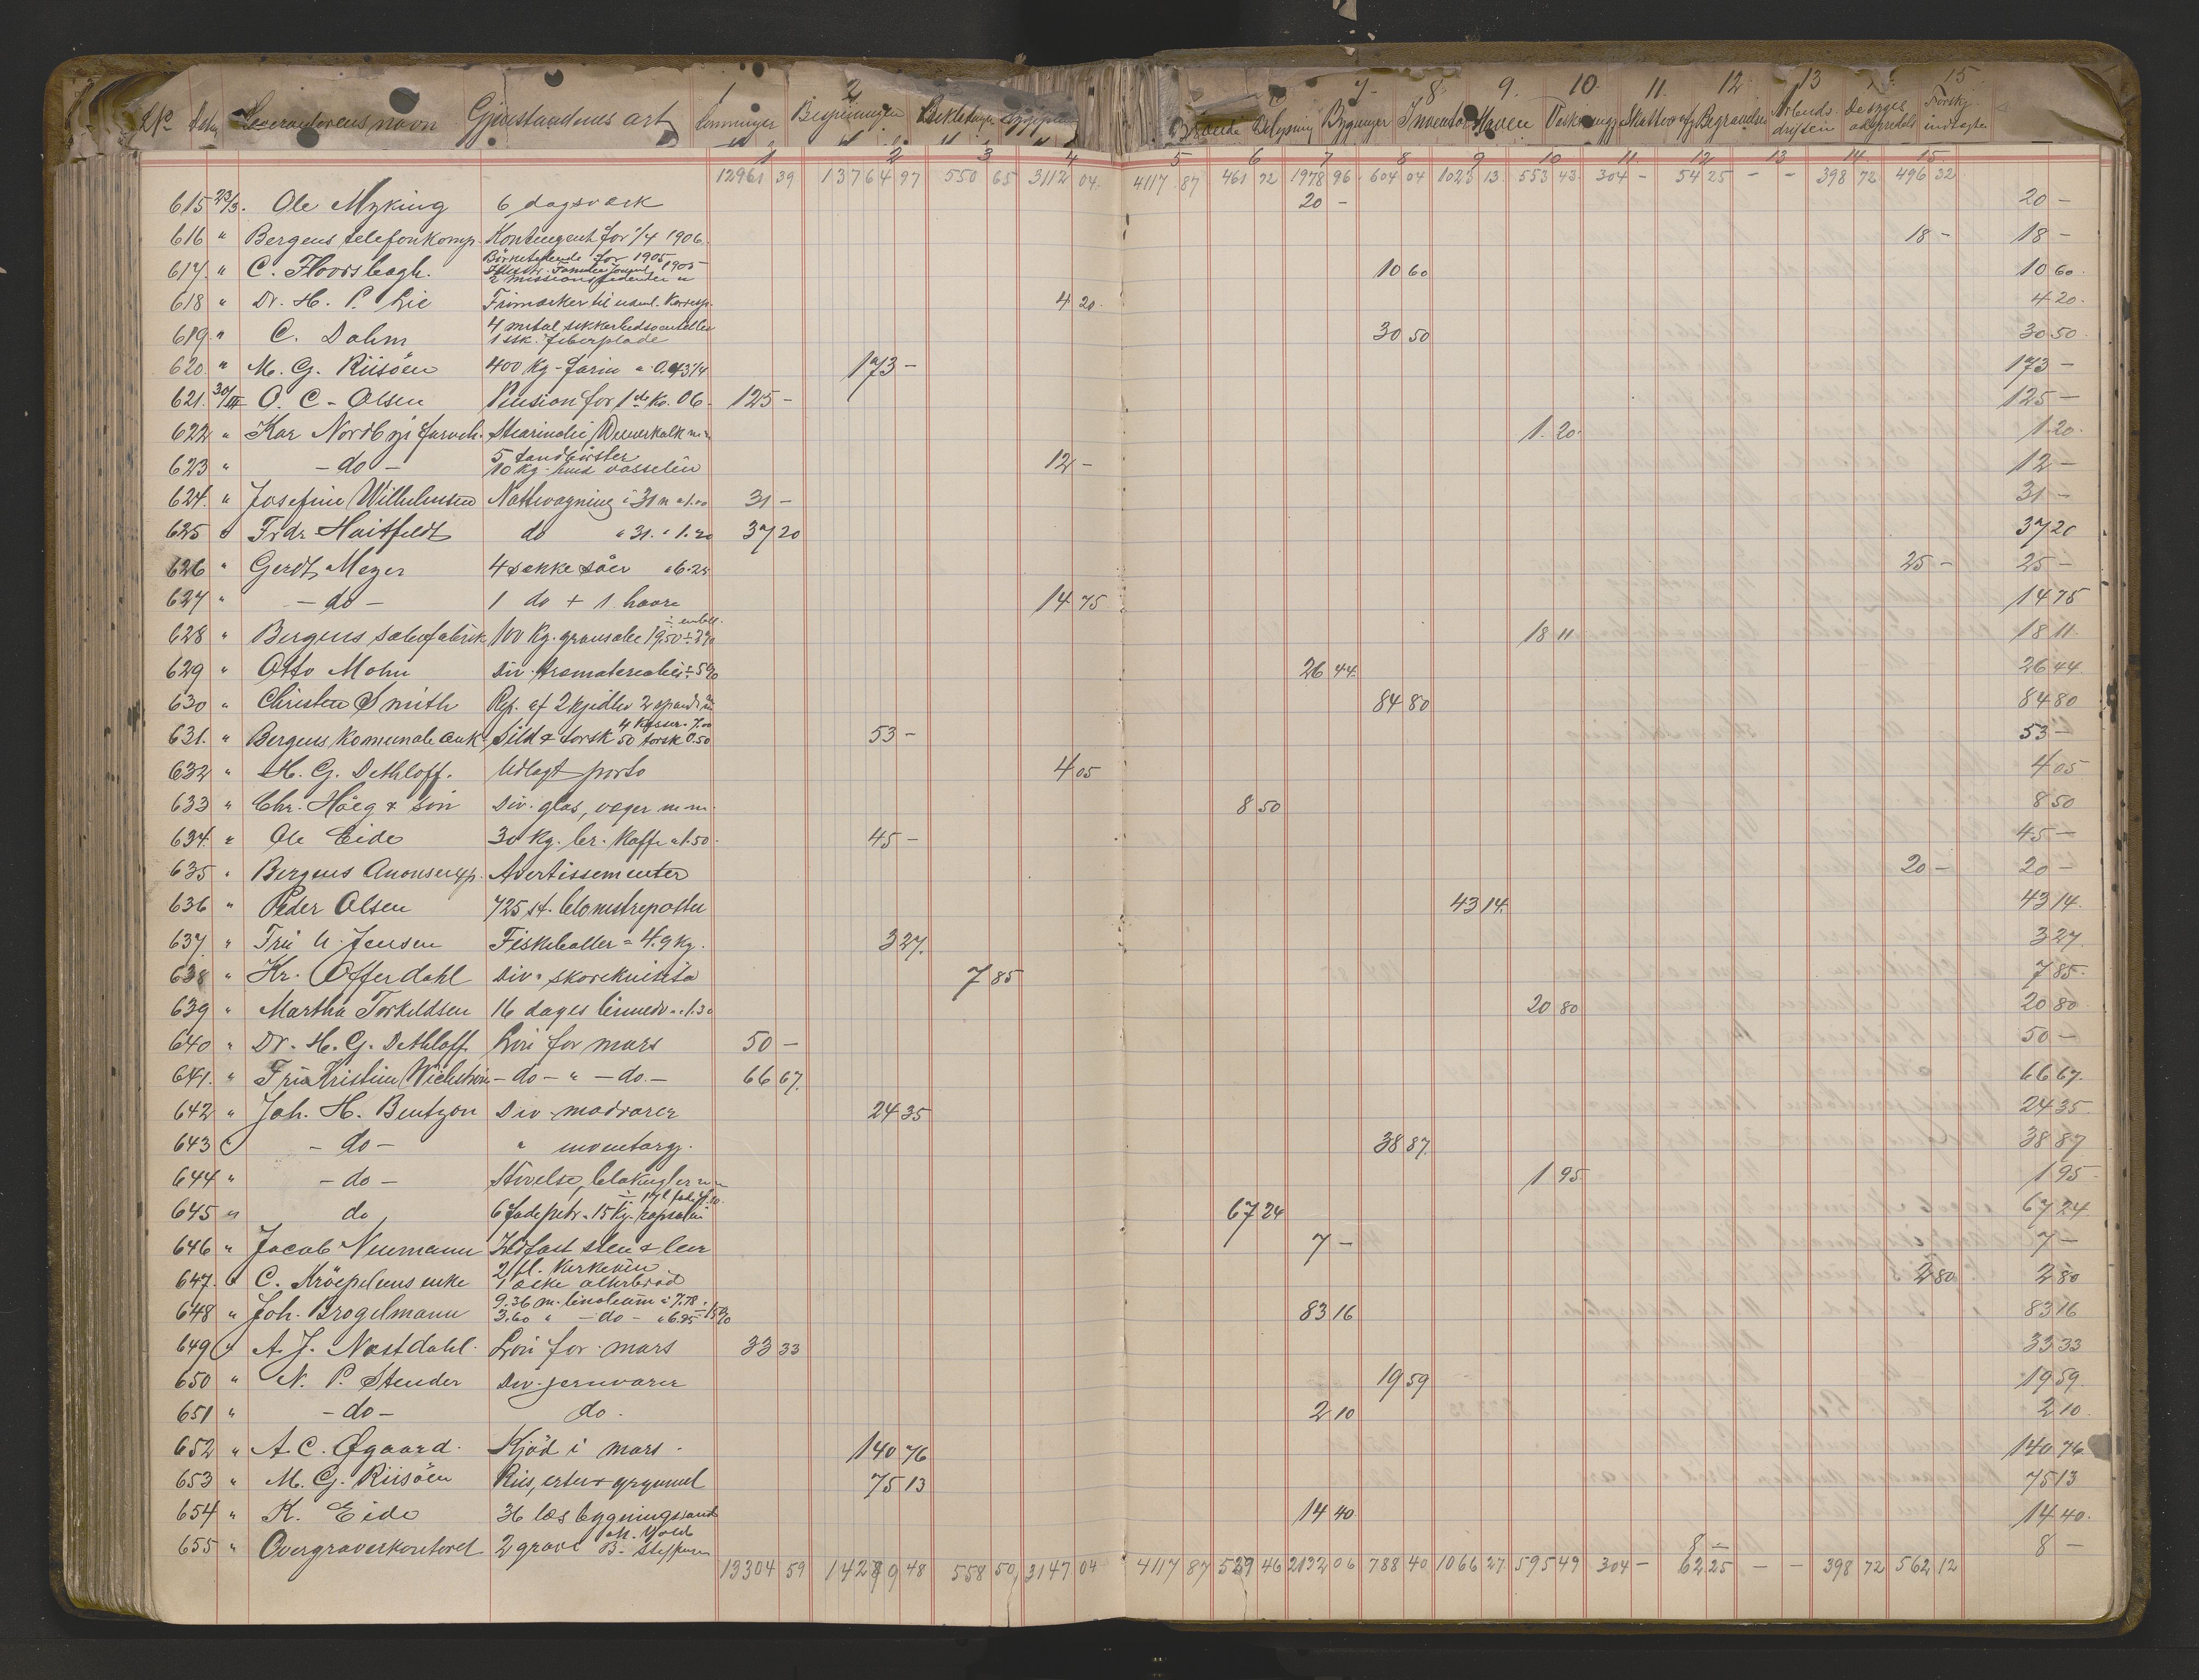 No Leverandørens navn Gjenstandens art Lønninger Bespisningen Beklædning Sygepleien Brænde Belysning Bygninger Inventar Haven Skatter Begravelse Arbeids-driften
1 2 7. 8. 9. 10. 11. 12. 13 15
1 2 3 4 5 6 7 8 9 10 11. 12 13 14 15.
12961 39 13764 97 550 65 3112 04. 4117 87 461 72 1978 96 604 04 1023 13. 553 43. 304 - 54 25 - - 398 72 496 32
615 23/3. Ole Myking 6 dagsverk 20 - 20 -
616 " Bergens telefonkomp. Kontingent for 1/4 1906. 18 - 18 -
617. " C. Floors bogh. for 1905 1905 2 missionstidender " 10 60 10 60.
618 " Dr. H. P. Lie Frimærker til udenl. Korresp. 4 20. 4 20.
619 " C. Dahm 4 metal sikkerhedsventiler 1 stk. fiberplade 30 50 30 50.
620. " M. G. Riisöen 400 Kg. farin a 0.43 1/4 173 - 173 -
621. 30/III O. C. Olsen Pension for 1ste Kv. 06. 125 - 125 -
622 " Kar Nordbye farveh. m.m 1. 20. 1 20.
623 " - do - 5 tandbörster 10 Kg. vasselin 12 - 12 -
624. " Josefine Wilhelmsen Nattevagning i 31 n a 1.00 31 - 31 -
625 " Frdr. Huitfeldt do " 31. " 1.20 37 20 37 20
626 " Gerdt Meyer 4 sække a 6.25 25 - 25 -
627 " - do - 1 do + 1 14 75 14 75
628 " Bergens sæbefabrik 100 Kg. grønsæbe 19.50 ÷ 2% 18 11 18 11.
629 " Otto Mohn Div. ÷ 5% 26 44. 26 44.
630 " Christen Smith Rep. af 2 kjedler 2 84 80 84 80
631. " Bergens Komunale auk. Sild & torsk 4 kasser 7.00 50 torsk 0.50 53 - 53 -
632 " H. G. Dethloff. Udlagt porto 4 05 4 05
633 " Chr. Höeg & sön Div. glas, væger m.m. 8 50 8 50
634. " Ole Eide 30 Kg. br. kaffe a 1.50. 45 - 45 -
635 " Bergens Anonseexp. Avertissementer 20 - 20 -
636 " Peder Olsen 725 st. blomsterpotter 43 14. 43 14.
637. " Frü A. Jensen Fiskeboller = 4.9 kg. 3 27. 3 27
638 " Kr. Offerdahl Div. skorekvisita 7 85 7 85.
639 " Martha Torkildsen 16 dages a 1.30 20 80 20 80
640 " Dr. H. G. Dethloff Lön for mars 50 - 50 -
641. " Frü Kristine Wickström - do - " - do. - 66 67. 66 67.
642 " Joh. H. Bentzon Div. madvarer 24 35 24 35
643 " - do - " inventarg. 38 87. 38 87
644 " - do - Stivelse, 1 95 1 95
645 " do 6 fade petr. 15 Kg. rapsolie 67 24 67 24
646 " Jacob Neumann Ildfast sten & leer 7 - 7 -
647. " C. Kröepeliens enke 2 fl. kirkevin 1 æske alterbröd 2 80 2 80
648 " Joh. Brögelmann 9.36 m. linoleum a 7.78 3.60 " - do - a 6.95 ÷ 15% 83 16 83 16
649 " A. J. Næstdahl. Lön for mars 33 33 33 33
650 " N. P. Stender Div. jernvarer 19 59 19 59.
651 " - do - do. 2 10 2 10.
652 " A. C. Øgaard. Kjöd i mars. 140 76 140 76
653 " M. G. Riisöen Riis, erter & grynmel 75 13 75 13
654 " K. Eide 36 læs bygningssand 14 40. 14 40.
655 " Overgraverkontoret 2 grave 8 - 8 -
13304 59 142 9 48 558 50 3147 04 4117 87 46 2132 06 788 40 1066 27. 595 49 304 - 62 25 - - 398 72 562 12